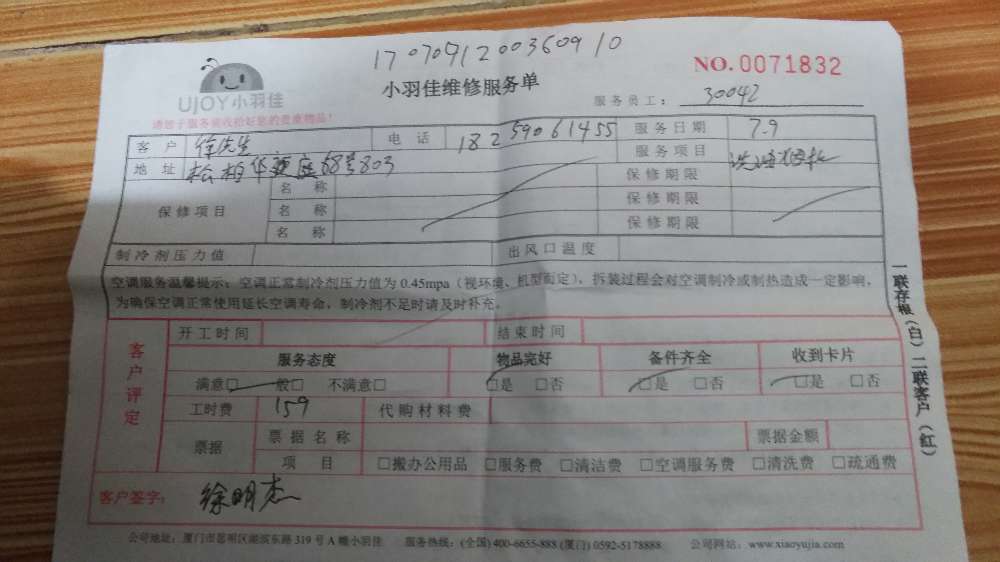 1707091200360910
UJOY小羽佳
小羽佳维修服务单
NO.0071832
服务员工: 30042
请您于服务前收拾好您的贵重物品!
客户 徐先生 电话 18259061455 服务日期 7.9
地址 松柏华 68号803 服务项目 洗
保修项目 名称 保修期限
名称 保修期限
名称 保修期限
制冷剂压力值 出风口温度
空调服务温馨提示: 空调正常制冷剂压力值为0.45mpa(视环境、机型而定), 拆装过程会对空调制冷或制热造成一定影响,
为确保空调正常使用延长空调寿命, 制冷剂不足时请及时补充。
客户评定
开工时间 结束时间
服务态度 物品完好 备件齐全 收到卡片
满意□ 一般□ 不满意□ □是 □否 □是 □否 □是 □否
工时费 159 代购材料费
票据 票据名称 票据金额
项目 □搬办公用品 □服务费 □清洁费 □空调服务费 □清洗费 □疏通费
客户签字: 徐明杰
一联存根(白)二联客户(红)
公司地址: 厦门市思明区湖滨东路319号A幢小羽佳 服务热线: (全国)400-6655-888 (厦门) 0592-5178888 公司网站: www.xiaoyujia.com